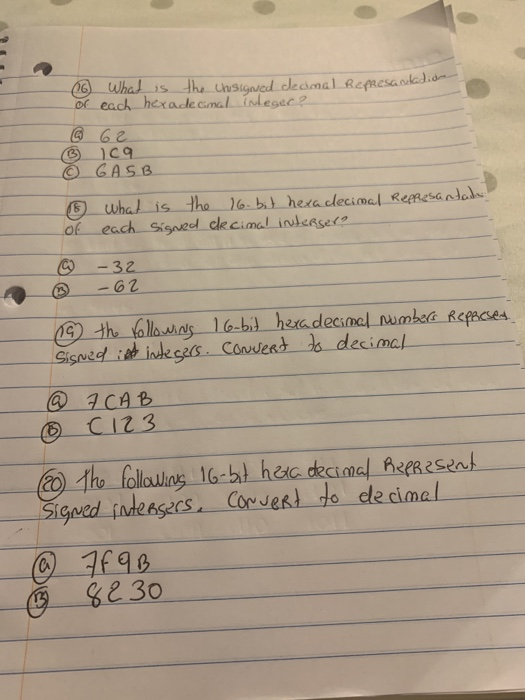 (16) What is the unsigned decimal Represantation
of each hexadecimal integer?
(a) 62
(B) 1C9
(C) 6A5B
(18) what is the 16-bit hexadecimal Represantati
of each signed decimal interger?
(a) -32
(B) -62
(19) the following 16-bit hexadecimal numbers Represent
Signed integers. Convert to decimal
(a) 7CAB
(B) C123
(20) the following 16-bit hexa decimal Represent
Signed intergers. Convert to decimal
(a) 7F9B
(B) 8230